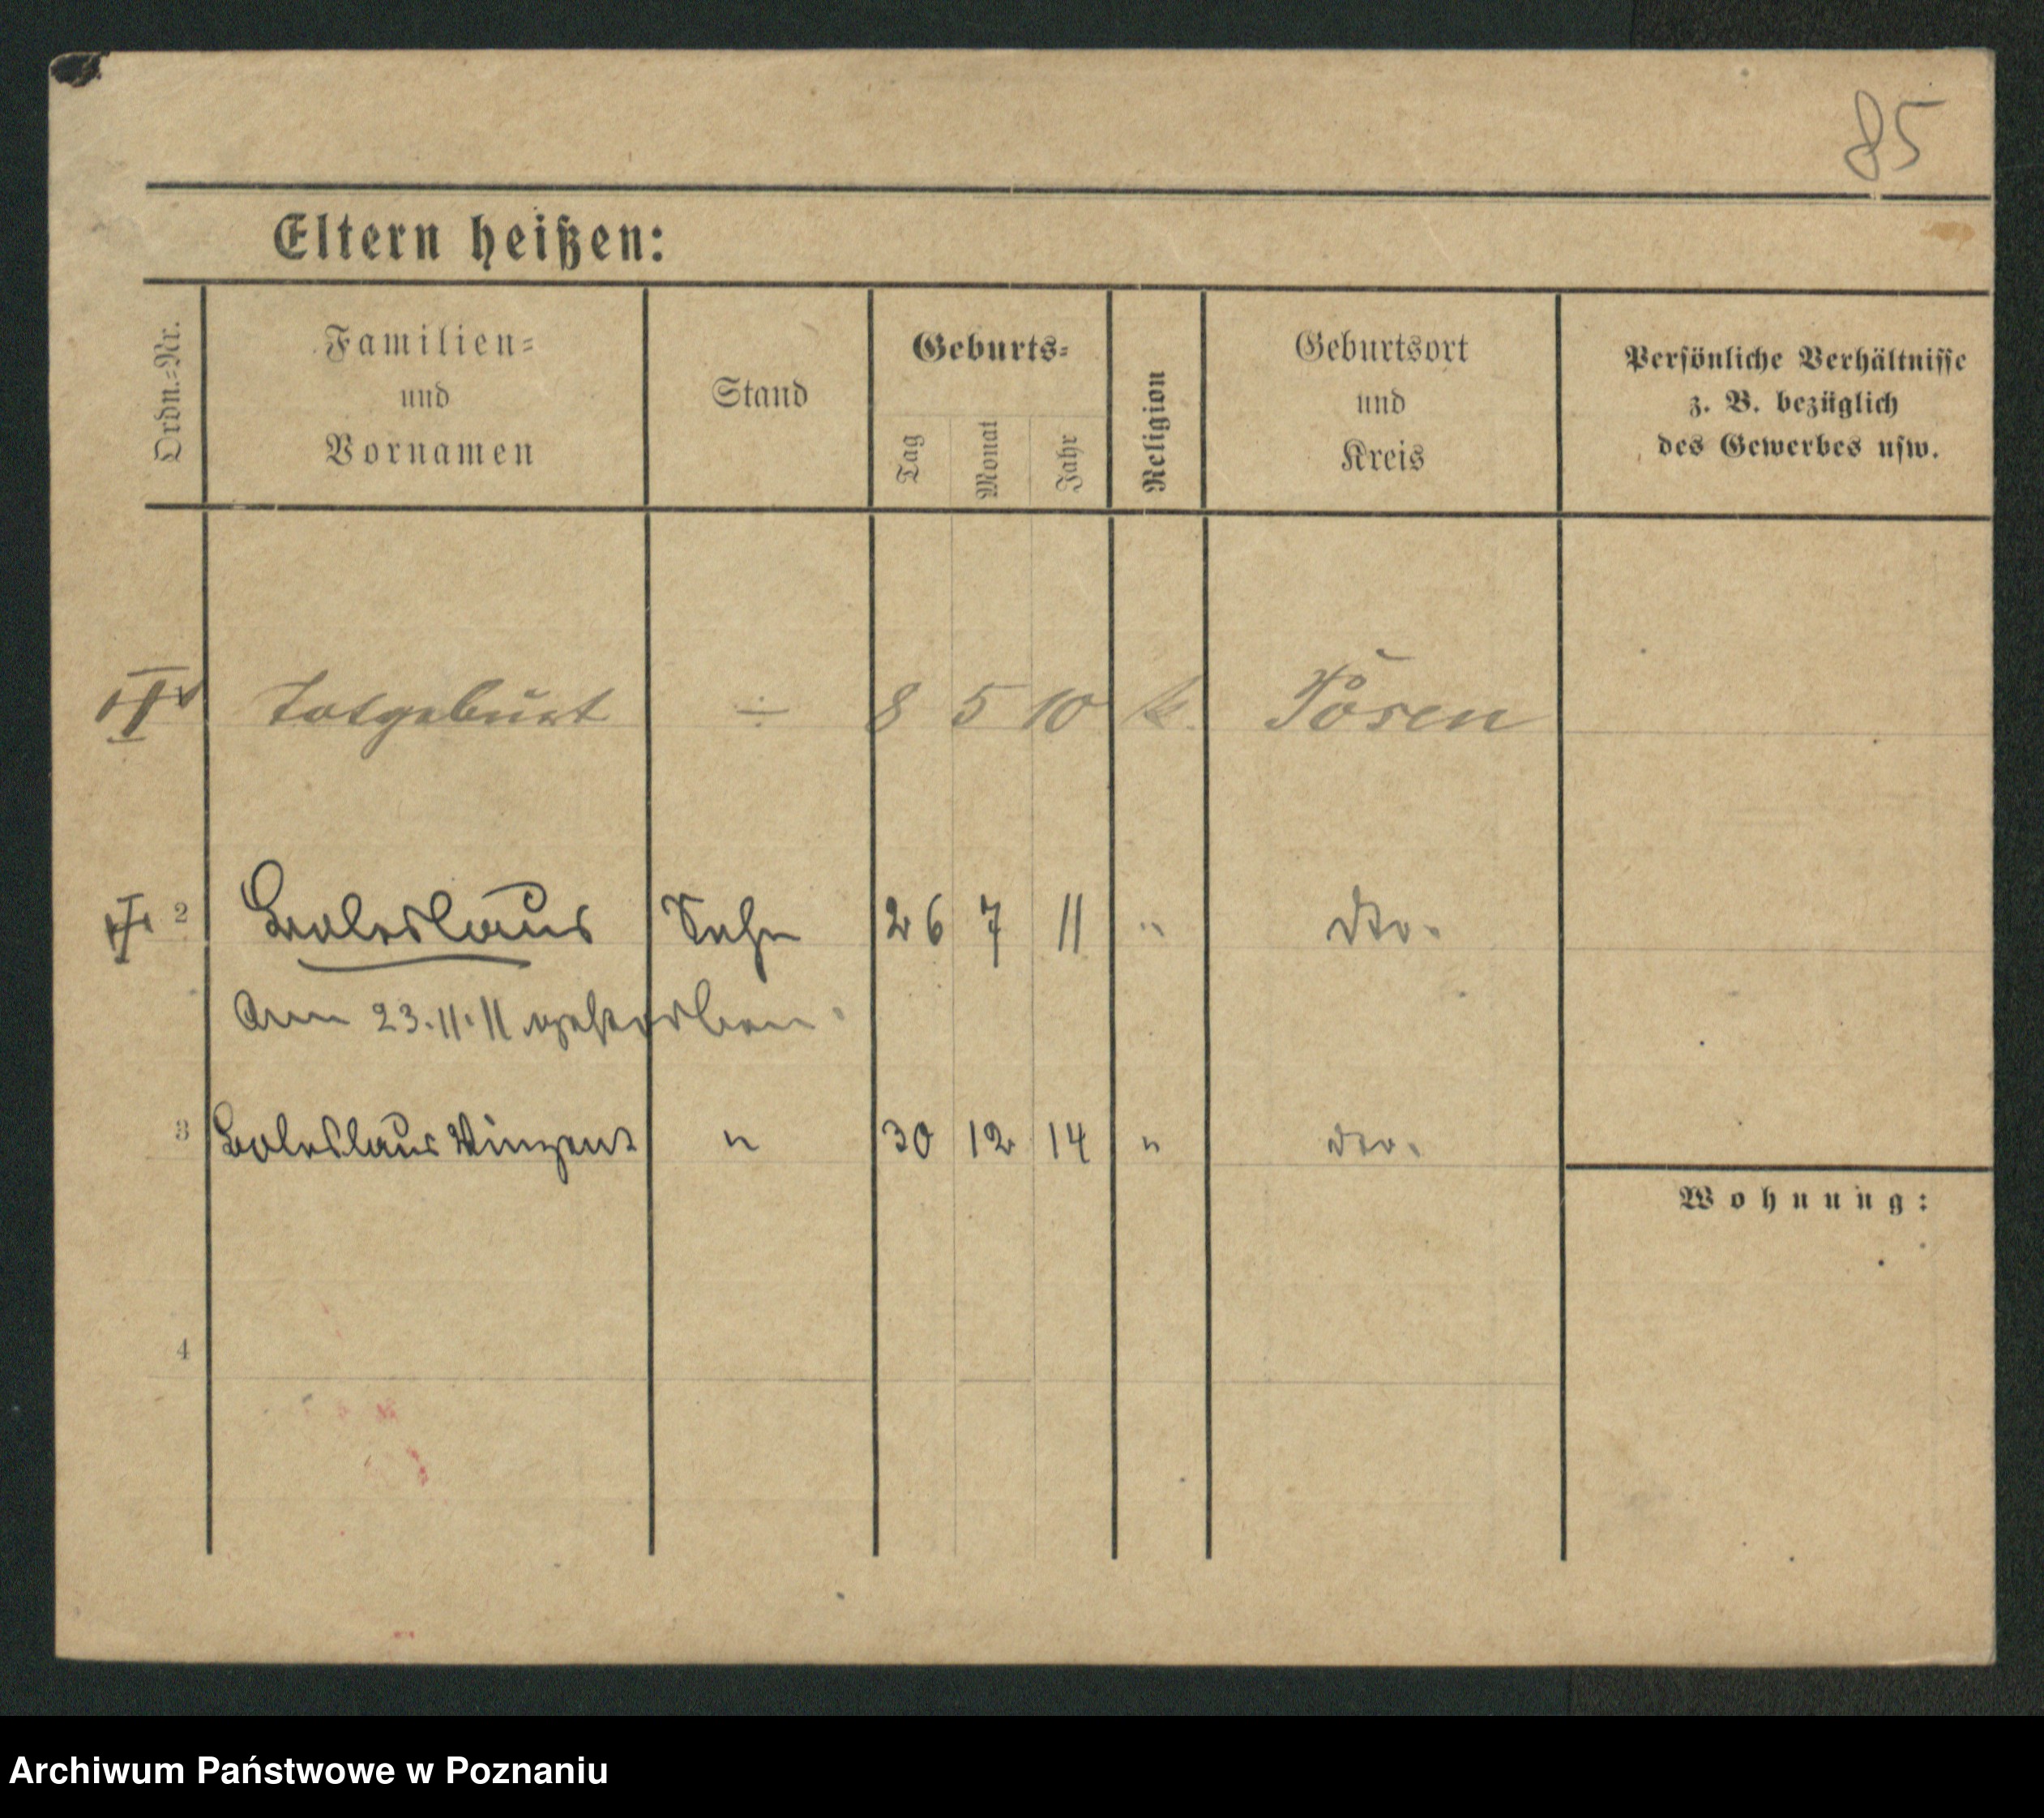 85
Eltern heißen:
Ordn.-Nr. Familien- und Vornamen Stand Geburts- Tag Monat Jahr Religion Geburtsort und Kreis Persönliche Verhältnisse z. B. bezüglich des Gewerbes usw.
Totgeburt ÷ 8 5 10 k. Posen
2 Boleslaus Sohn 26 7 11 " dto.
Am 23.11.11 gestorben.
3 Boleslaus Vinzent " 30 12 14 " dto.
Wohnung:
4
Archiwum Państwowe w Poznaniu